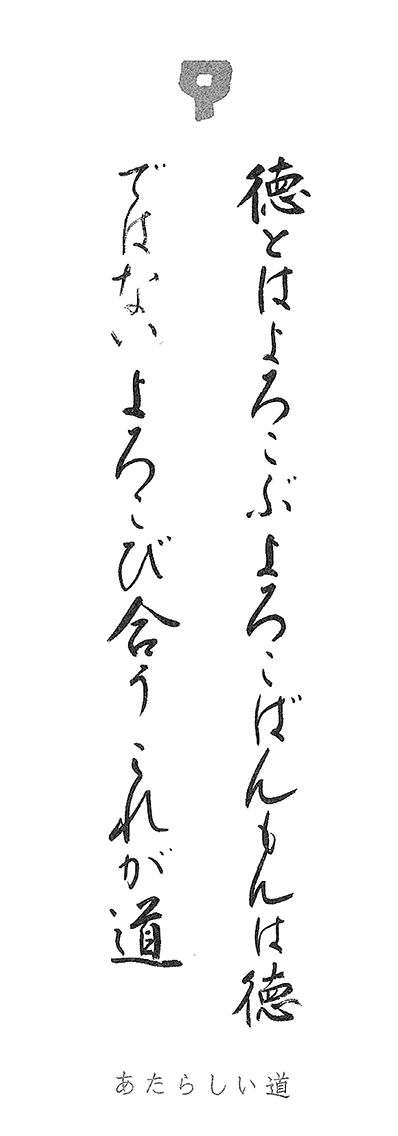 徳とはよろこぶよろこばんもんは徳
ではないよろこび合うこれが道
あたらしい道